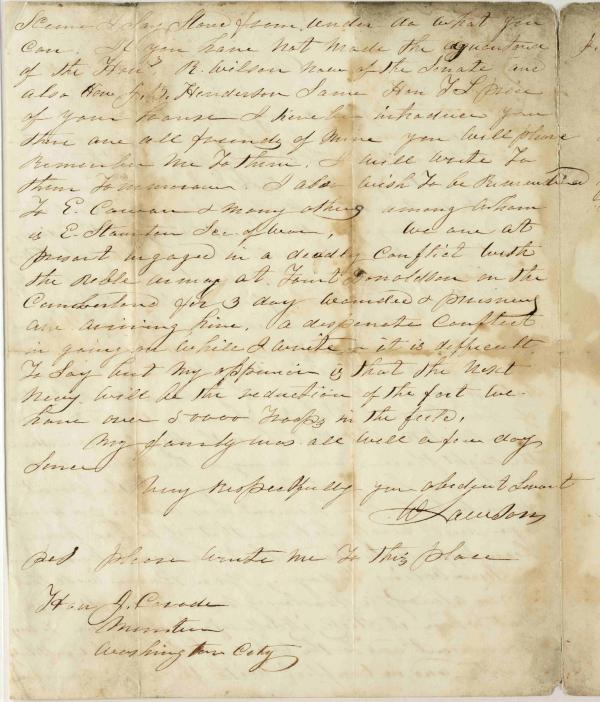 & Say Stone from under do what you
can. If you have not made the aquantence
of the Hon R. Wilson now of the Senate and
also Hon J. B. Henderson Same Hon
of your house I here by introduce you
there are all friends of mine you will please
Remember me To them. I will write To
them Tommorrow. I also Wish To be Remembered
To E. Cowan & many others among whom
is E. Stanton Sec of War, we are at
present engaged in a deadly conflict with
the Reble army at Fourt Donaldson in the
Cumberland for 3 day wounded & prisners
are ariving hire. a desperate Conflict
in going on while I write - it is difficult
To Say but my oppinion is that the next
news will be the reduction of the fort we
have over 50000 Troops in the field.
My family was all well a few day
Since
Very Respectfully your obedient Servant
Lawson
please write me To this place
Hon J. Covode
Washington City